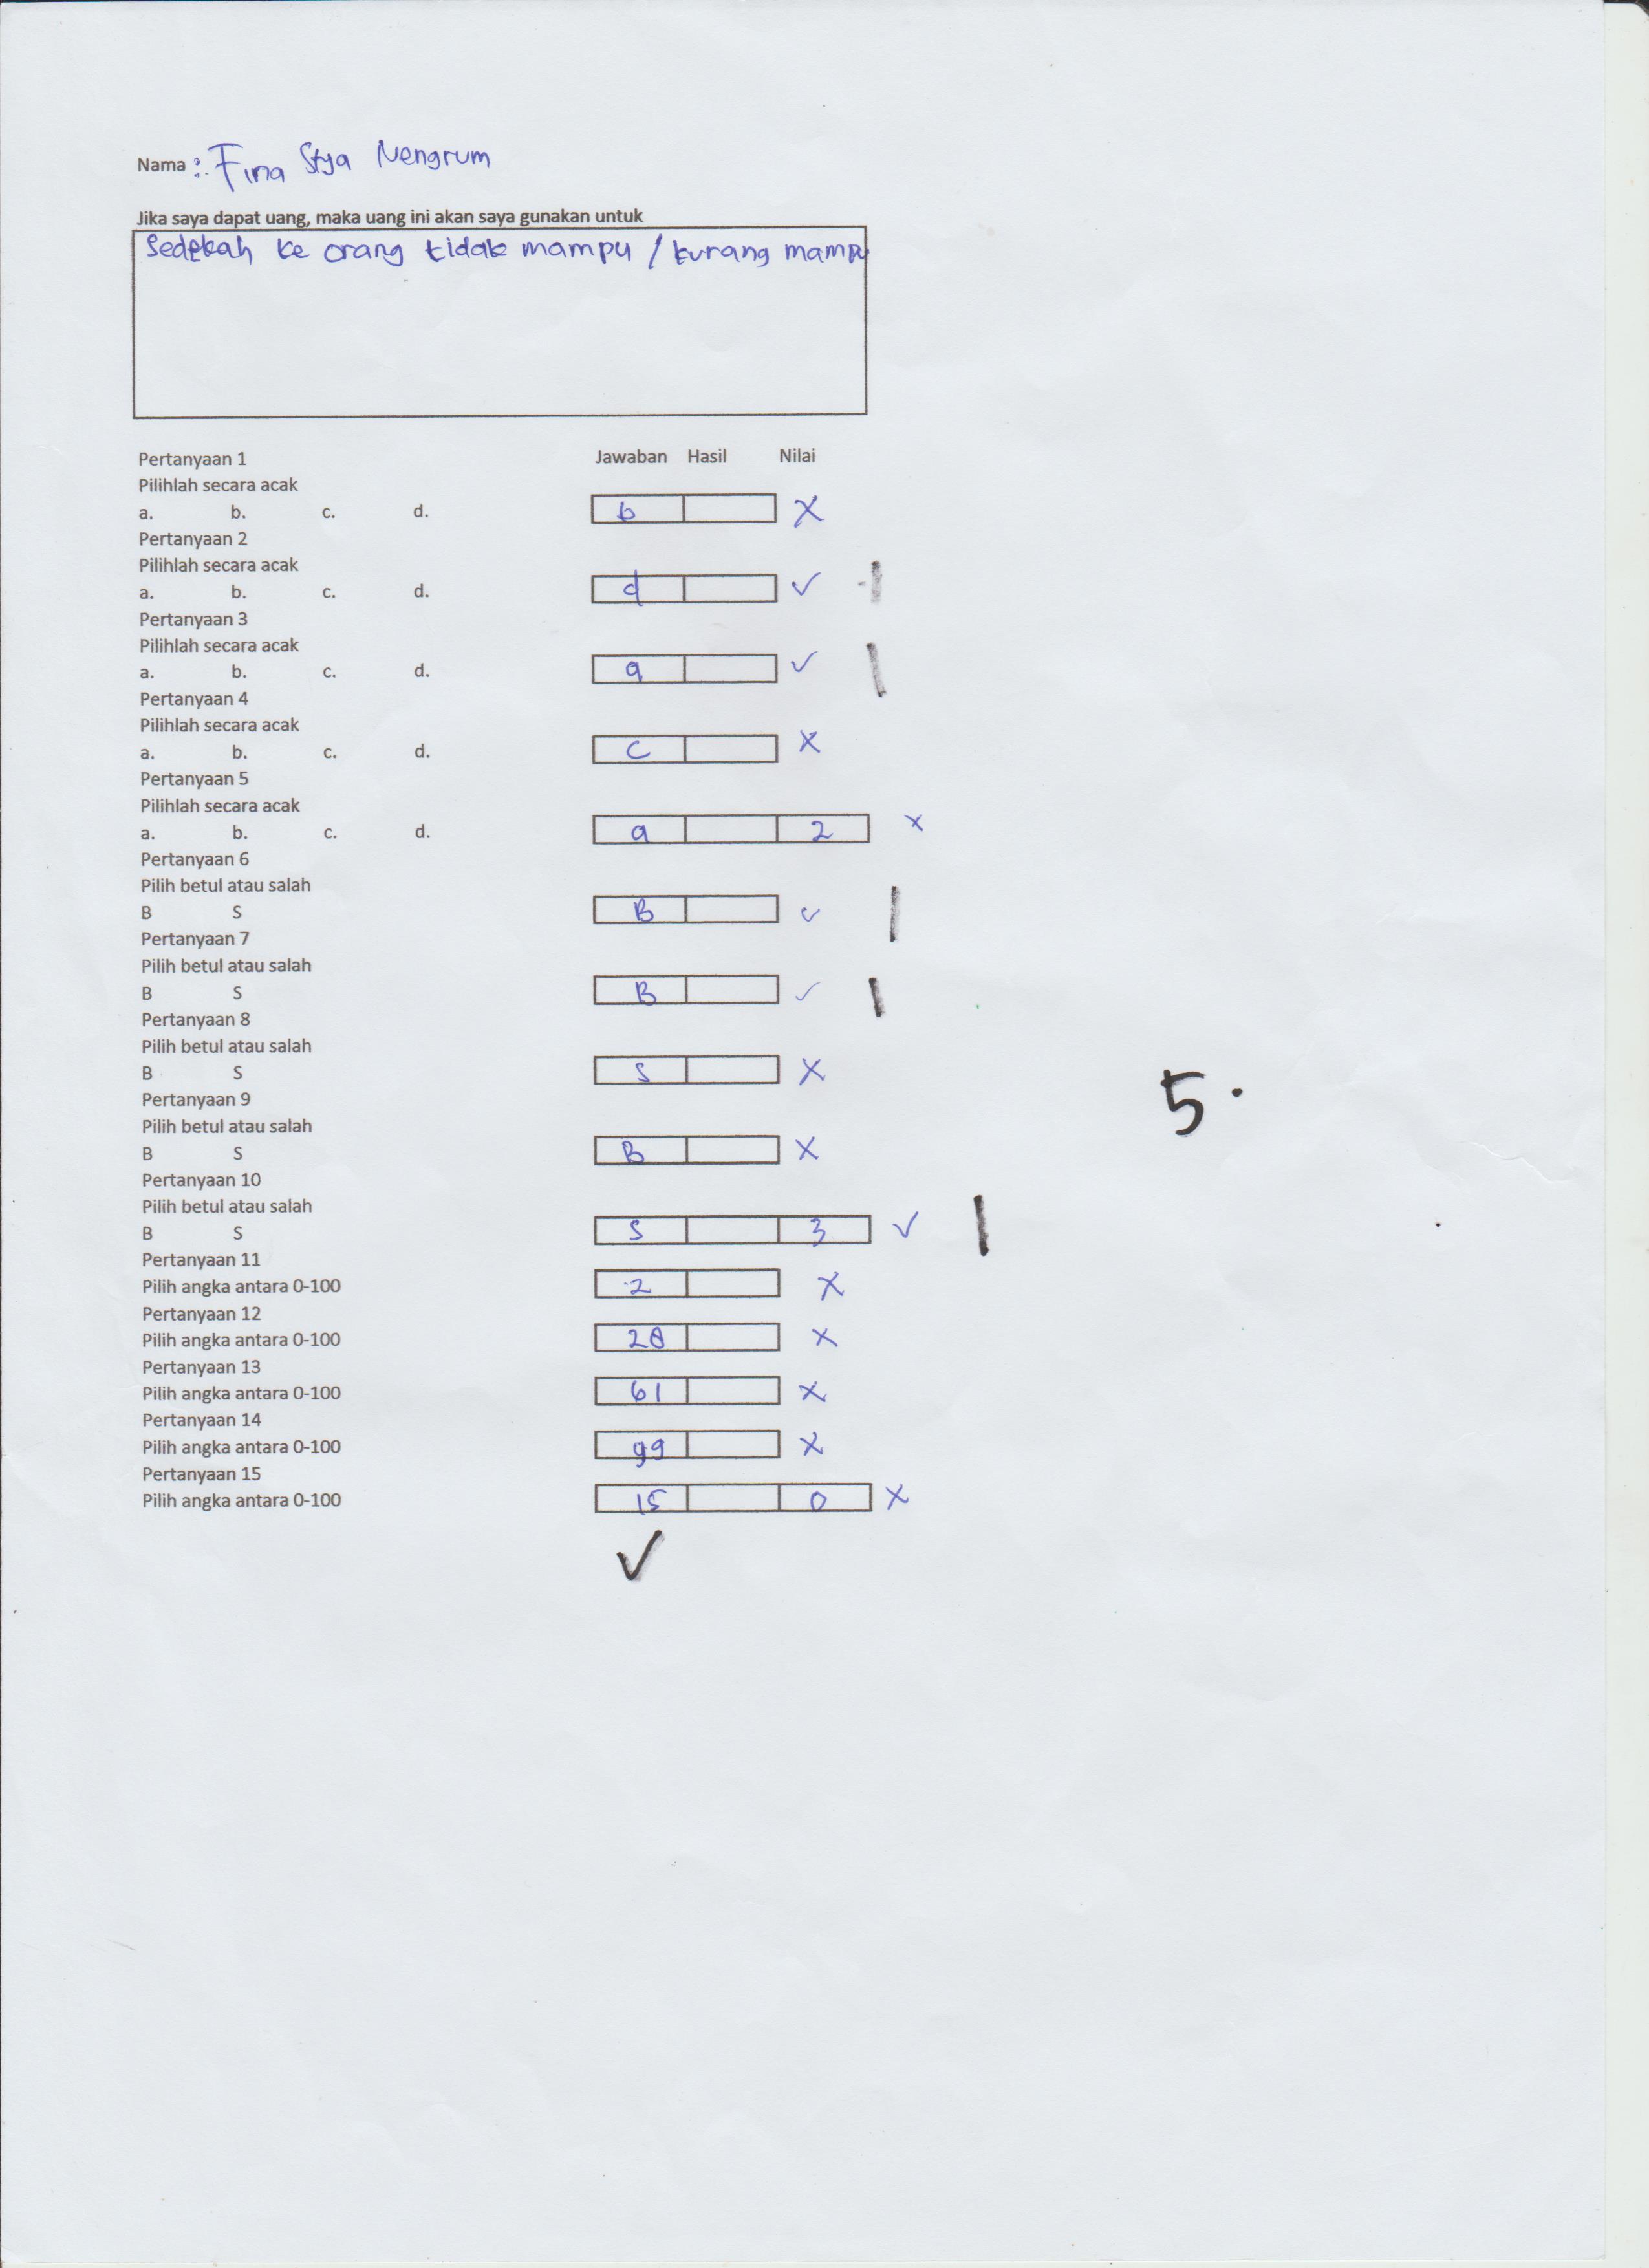 Nama : Fina Stya Nengrum
Jika saya dapat uang, maka uang ini akan saya gunakan untuk
Sedekah ke orang tidak mampu / kurang mampu
Pertanyaan 1 Jawaban Hasil Nilai
Pilihlah secara acak
a. b. c. d. b X
Pertanyaan 2
Pilihlah secara acak
a. b. c. d. d ✓ 1
Pertanyaan 3
Pilihlah secara acak
a. b. c. d. a ✓ 1
Pertanyaan 4
Pilihlah secara acak
a. b. c. d. c X
Pertanyaan 5
Pilihlah secara acak
a. b. c. d. a 2 X
Pertanyaan 6
Pilih betul atau salah
B S B ✓ 1
Pertanyaan 7
Pilih betul atau salah
B S B ✓ 1
Pertanyaan 8
Pilih betul atau salah
B S S X
Pertanyaan 9
Pilih betul atau salah
B S B X
5.
Pertanyaan 10
Pilih betul atau salah
B S S 3 ✓ 1
Pertanyaan 11
Pilih angka antara 0-100 2 X
Pertanyaan 12
Pilih angka antara 0-100 28 X
Pertanyaan 13
Pilih angka antara 0-100 61 X
Pertanyaan 14
Pilih angka antara 0-100 99 X
Pertanyaan 15
Pilih angka antara 0-100 15 0 X
✓